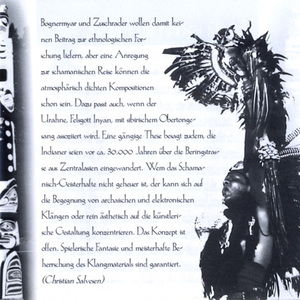 Bognermyar und Zuschrader wollen damit kei-
nen Beitrag zur ethnologischen For-
schung liefern, aber eine Anregung
zur schamanischen Reise können die
atmosphärisch dichten Kompositionen
schon sein. Dazu passt auch, wenn der
Urahne, Felsgott Inyan, mit sibirischem Obertonge-
sang assoziiert wird. Eine gängige These besagt zudem, die
Indianer seien vor ca. 30.000 Jahren über die Beringstras-
se aus Zentralasien eingewandert. Wem das Schama-
nisch-Geisterhafte nicht geheuer ist, der kann sich auf
die Begegnung von archaischen und elektronischen
Klängen oder rein ästhetisch auf die künstleri-
sche Gestaltung konzentrieren. Das Konzept ist
offen. Spielerische Fantasie und meisterhafte Be-
herrschung des Klangmaterials sind garantiert.
(Christian Salvesen)